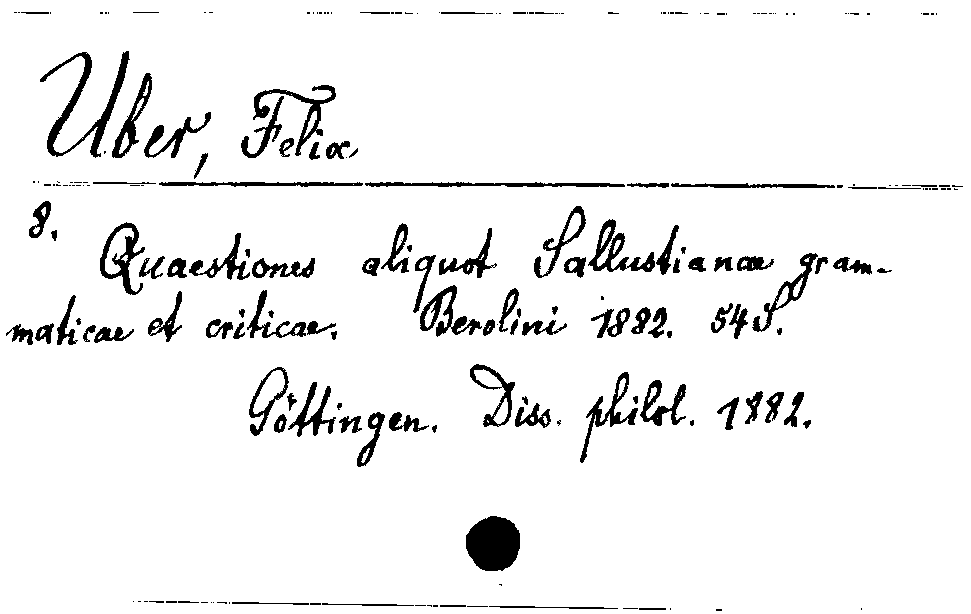 Uber, Felix
8.
Quaestiones aliquot Sallustianae gram-
maticae et criticae. Berolini 1882. 54 S.
Göttingen. Diss. philol. 1882.